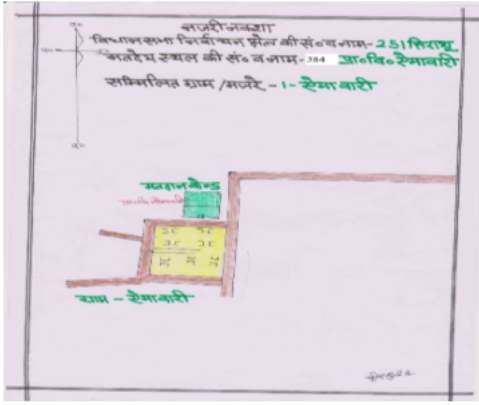 नजरी नक्शा
विधानसभा निर्वाचन क्षेत्र की सं० व नाम- 251 सिराथू
मतदेय स्थल की सं० व नाम- 384 प्रा० वि० सैमाबारी
सम्मिलित ग्राम / मजरे - 1- सैमाबारी
मतदान केन्द्र
ग्राम - सैमाबारी